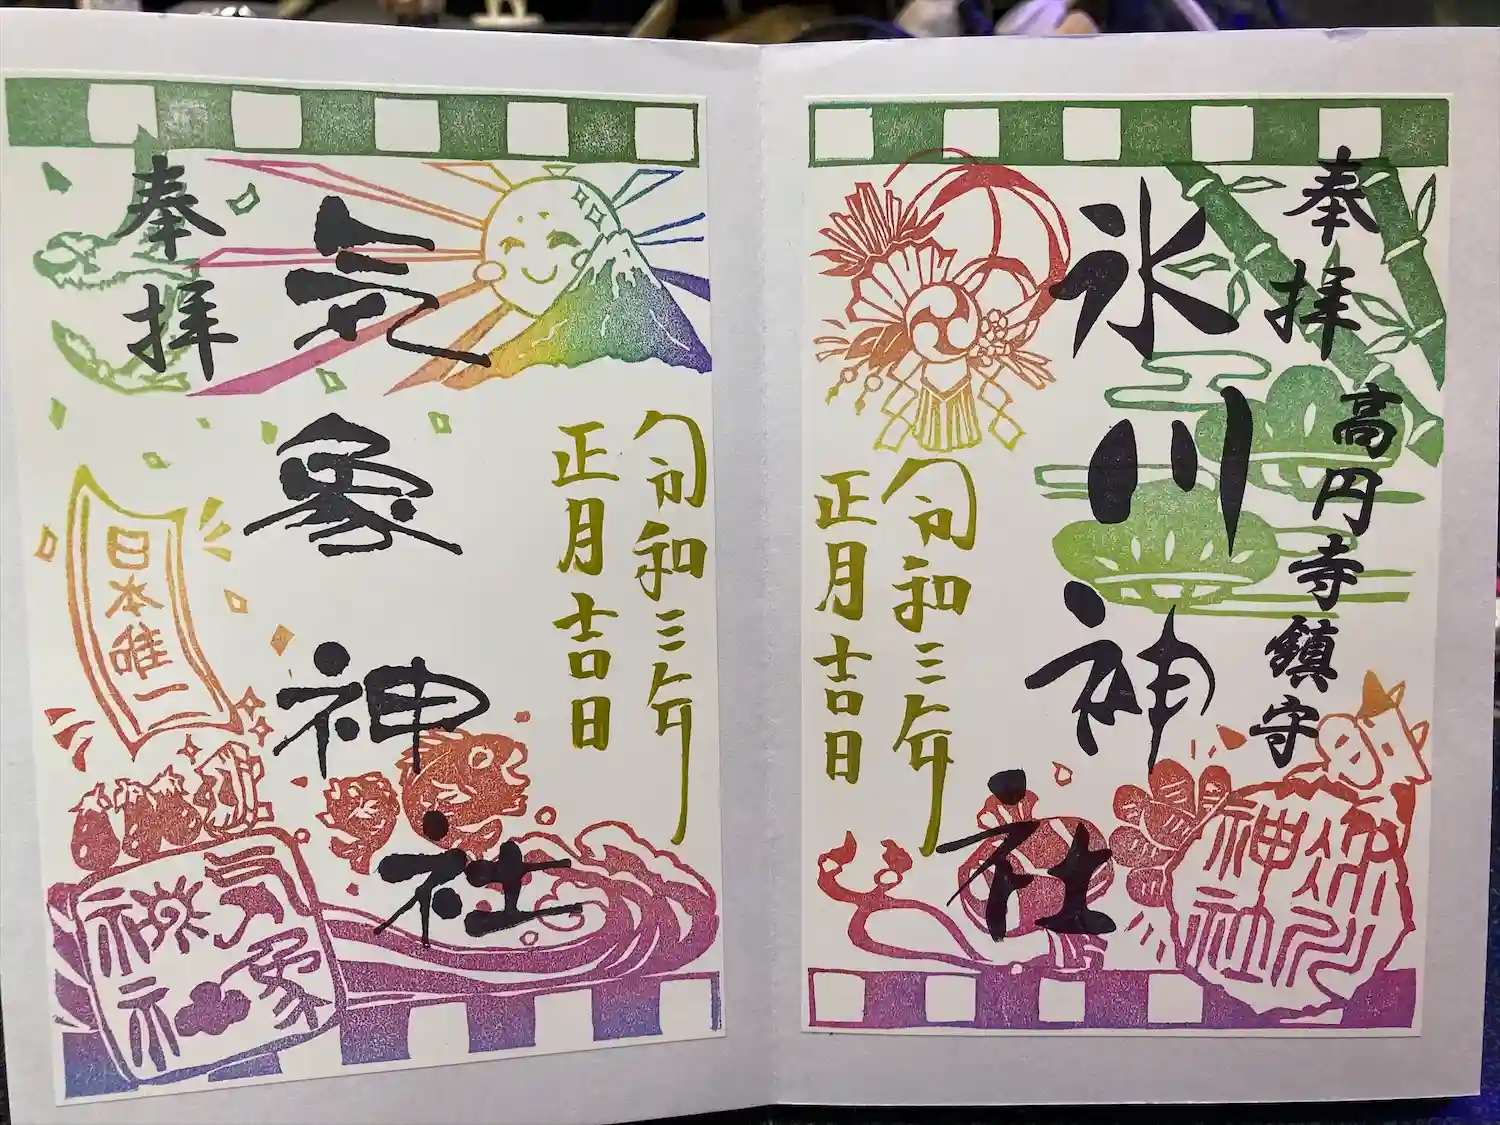 奉拝
高円寺鎮守
氷川神社
令和三年
正月吉日
氷川神社
令和三年
正月吉日
気象神社
奉拝
日本唯一
気象神社